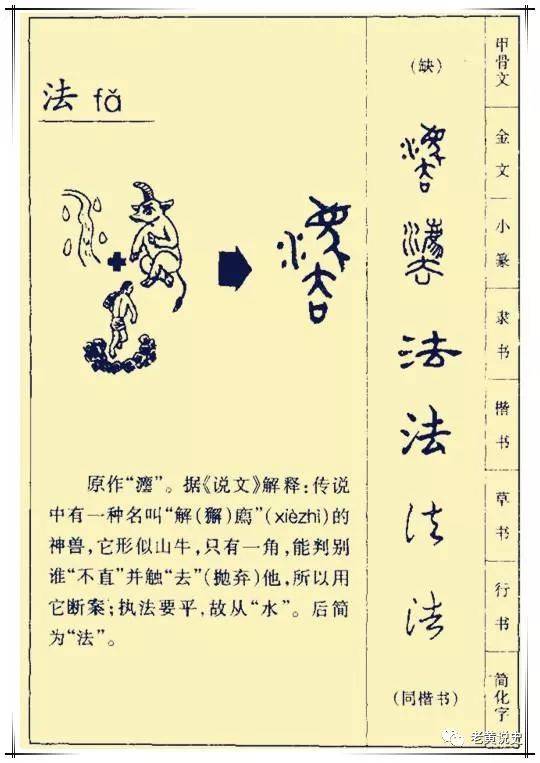 法 fǎ
原作“灋”。据《说文》解释:传说
中有一种名叫“解(獬)廌”(xièzhì)的
神兽,它形似山牛,只有一角,能判别
谁“不直”并触“去”(抛弃)他,所以用
它断案;执法要平,故从“水”。后简
为“法”。
(缺)
灋
灋
法
法
法
法
(同楷书)
甲骨文
金文
小篆
隶书
楷书
草书
行书
简化字
老黄说史